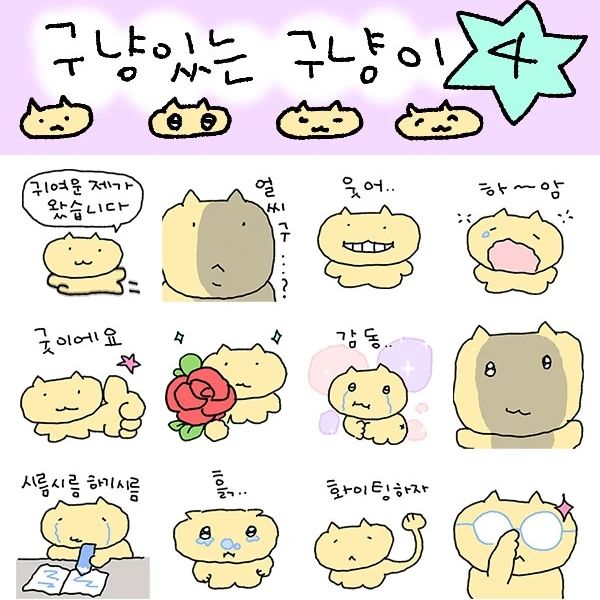 구냥있는 구냥이 4
귀여운 제가
왔습니다
얼씨구....?
웃어..
하~암
굿이에요
감동..
시름시름 하기시름
흙..
화이팅하자